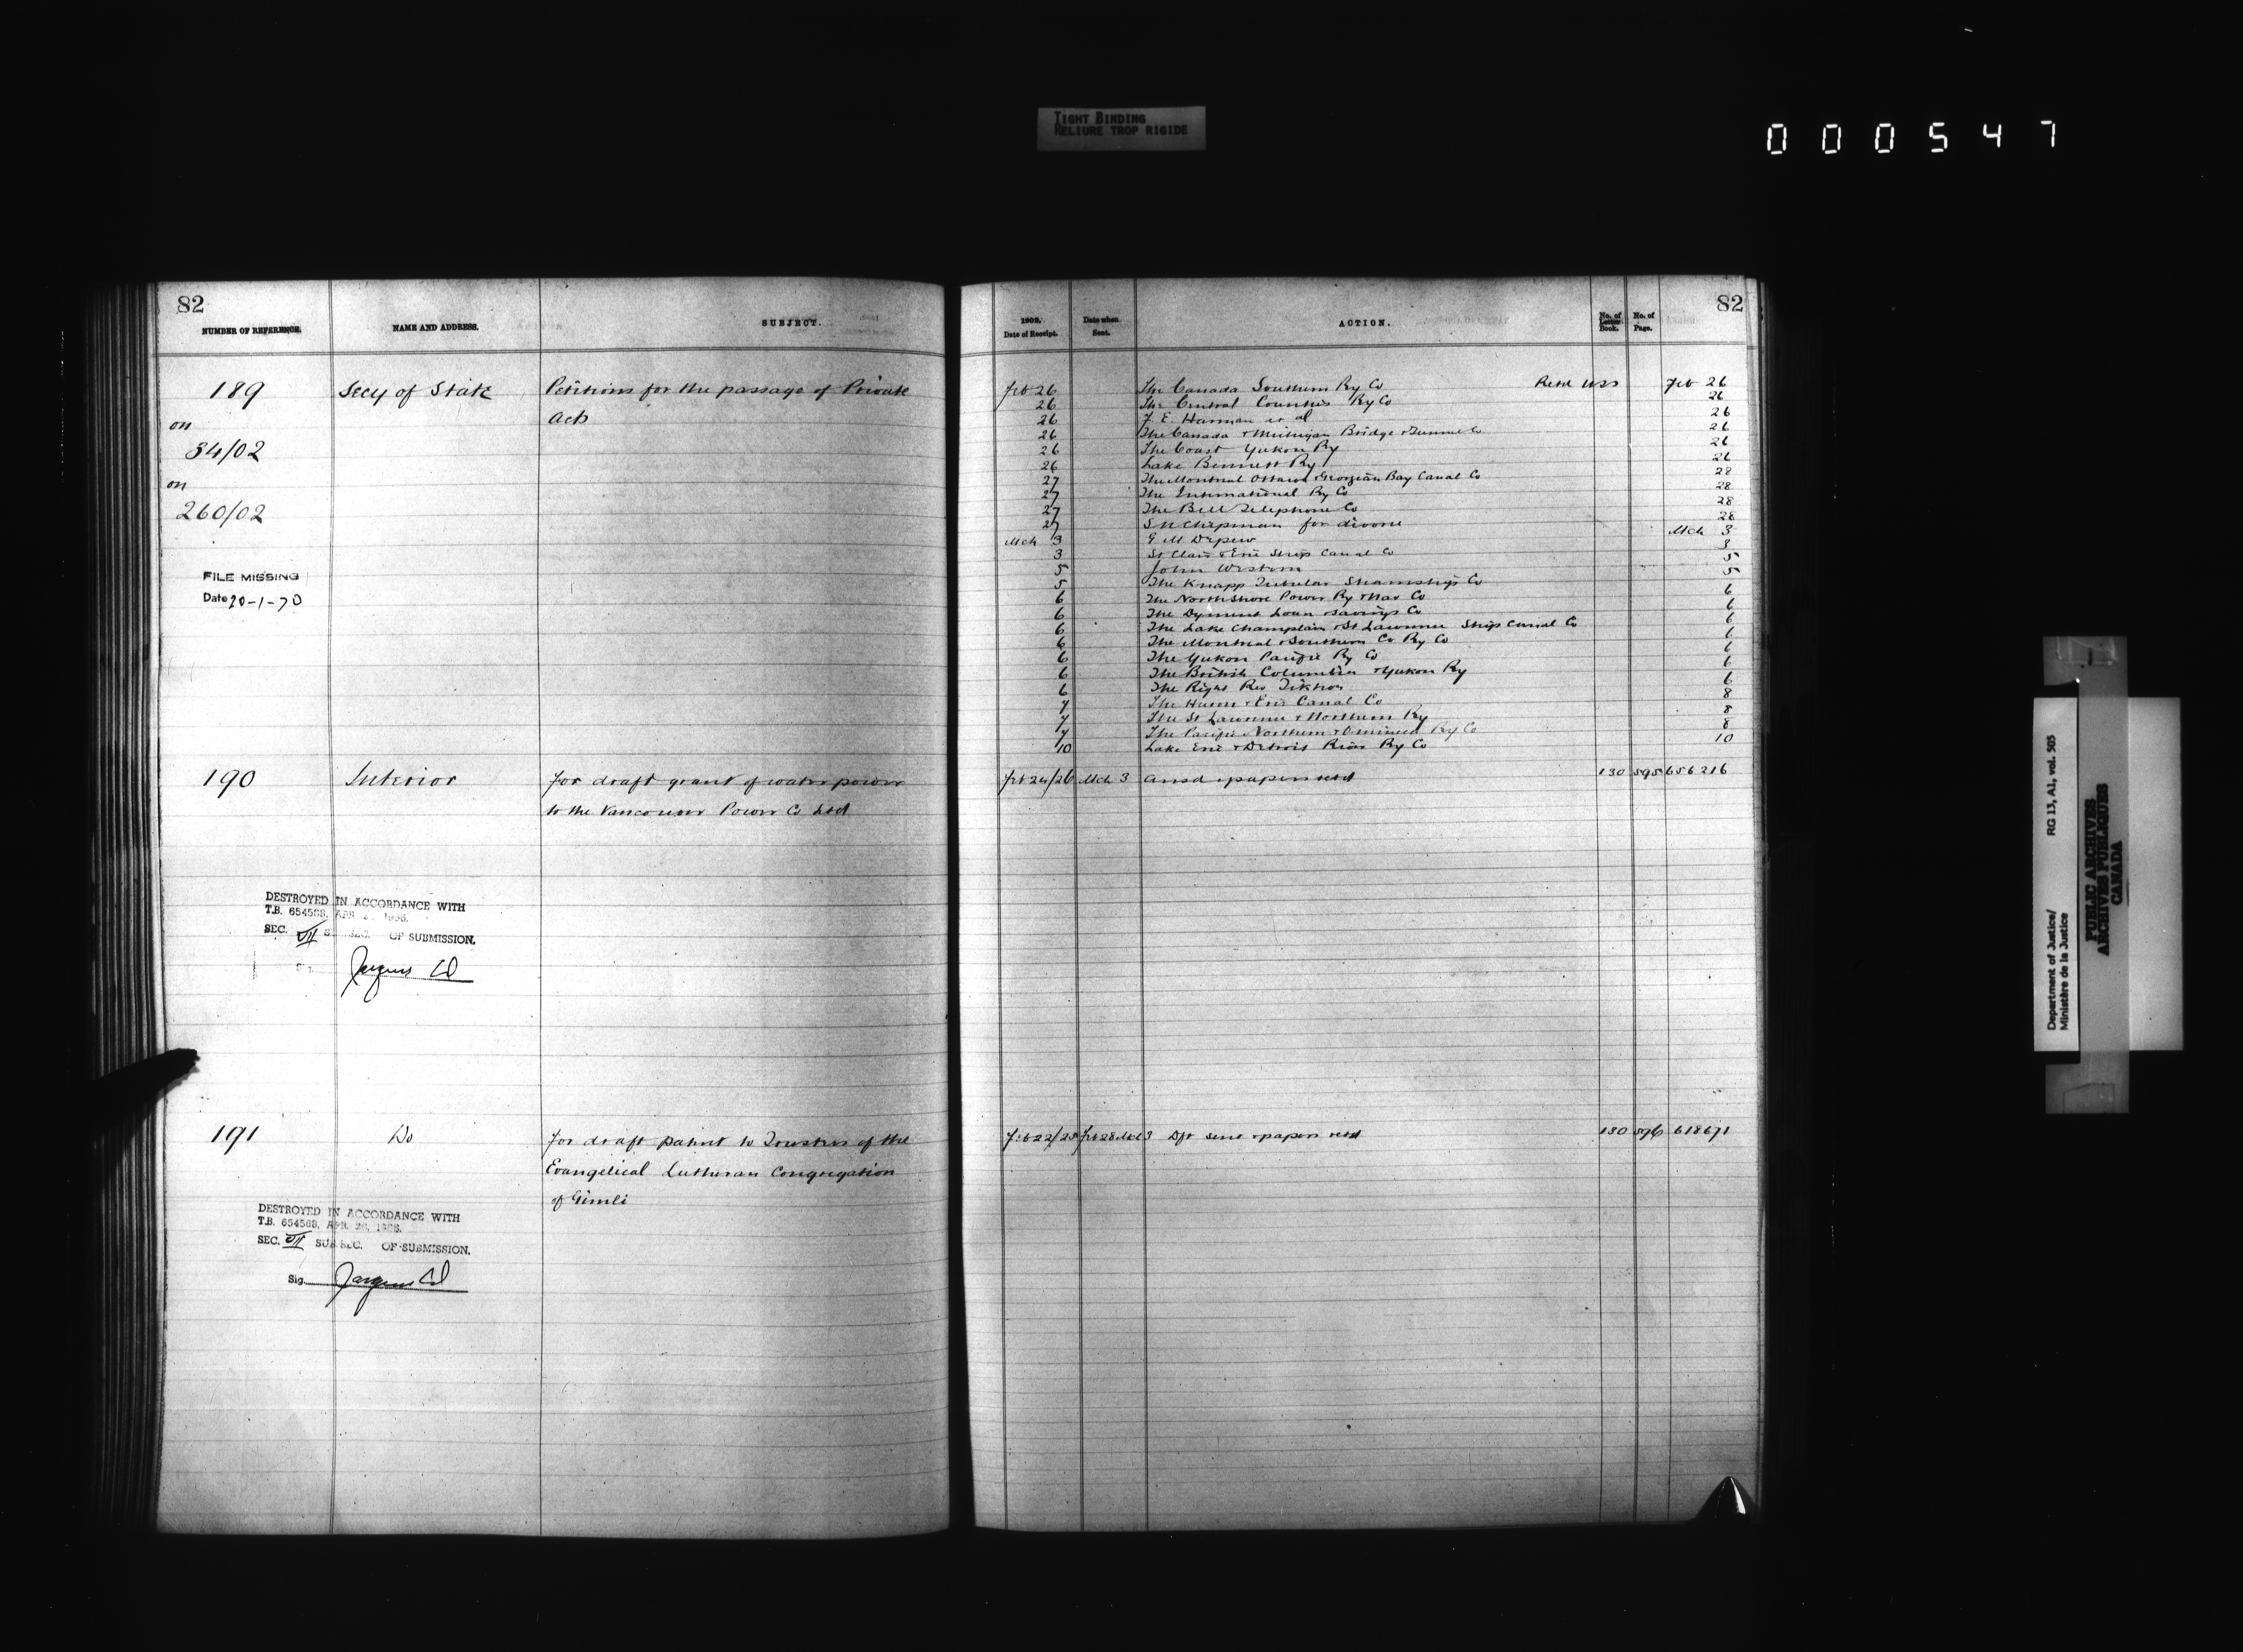 TIGHT BINDING
RELIURE TROP RIGIDE
000547
82
NUMBER OF REFERENCE.
NAME AND ADDRESS.
SUBJECT.
189
Secy of State
Petitions for the passage of Private
Acts
on
34/02
on
260/02
FILE MISSING
Date 20-1-70
190
Interior
for draft grant of water power
to the Vancouver Power Co Ltd
DESTROYED IN ACCORDANCE WITH
T.B. 654568, APR 1968.
SEC. VII OF SUBMISSION.
191
Do
for draft patent to Trustees of the
Evangelical Lutheran Congregation
of Gimli
DESTROYED IN ACCORDANCE WITH
T.B. 654568, APR. 26, 1968.
SEC. VII SUB.SEC. OF SUBMISSION.
Sig.
82
1902.
Date of Receipt.
Date when
Sent.
ACTION.
No. of
Letter
Book.
No. of
Page.
Feb 26 The Canada Southern Ry Co Retd Feb 26
26 The Central Counties Ry Co 26
26 F. E. Harman et al 26
26 The Canada & Michigan Bridge & Tunnel Co 26
26 The Coast Yukon Ry 26
26 Lake Bennett Ry 26
27 The Montreal Ottawa & Georgian Bay Canal Co 28
27 The International Ry Co 28
27 The Bell Telephone Co 28
27 Chapman for divorce 28
Mch 3 G M Depew Mch 3
3 St Clair & Erie Ship Canal Co 3
5 John Weston 5
5 The Knapp Tubular Steamship Co 5
6 The North Shore Power Ry & Nav Co 6
6 The Dyment Loan & Savings Co 6
6 The Lake Champlain & St Lawrence Ship Canal Co 6
6 The Montreal & Southern Co Ry Co 6
6 The Yukon Pacific Ry Co 6
6 The British Columbia & Yukon Ry 6
6 The Right Rev Tikhon 6
7 The Huron & Erie Canal Co 8
7 The St Lawrence & Northern Ry 8
7 The Pacific Northern & Omineca Ry Co 8
10 Lake Erie & Detroit River Ry Co 10
Feb 24/26 Mch 3 ansd & papers retd 130 595 656216
Feb 22/25 Feb 28 Mch 3 Dft sent & papers retd 130 596 618671
Department of Justice/ RG 13, A1, vol. 505
Ministère de la Justice
PUBLIC ARCHIVES
ARCHIVES PUBLIQUES
CANADA